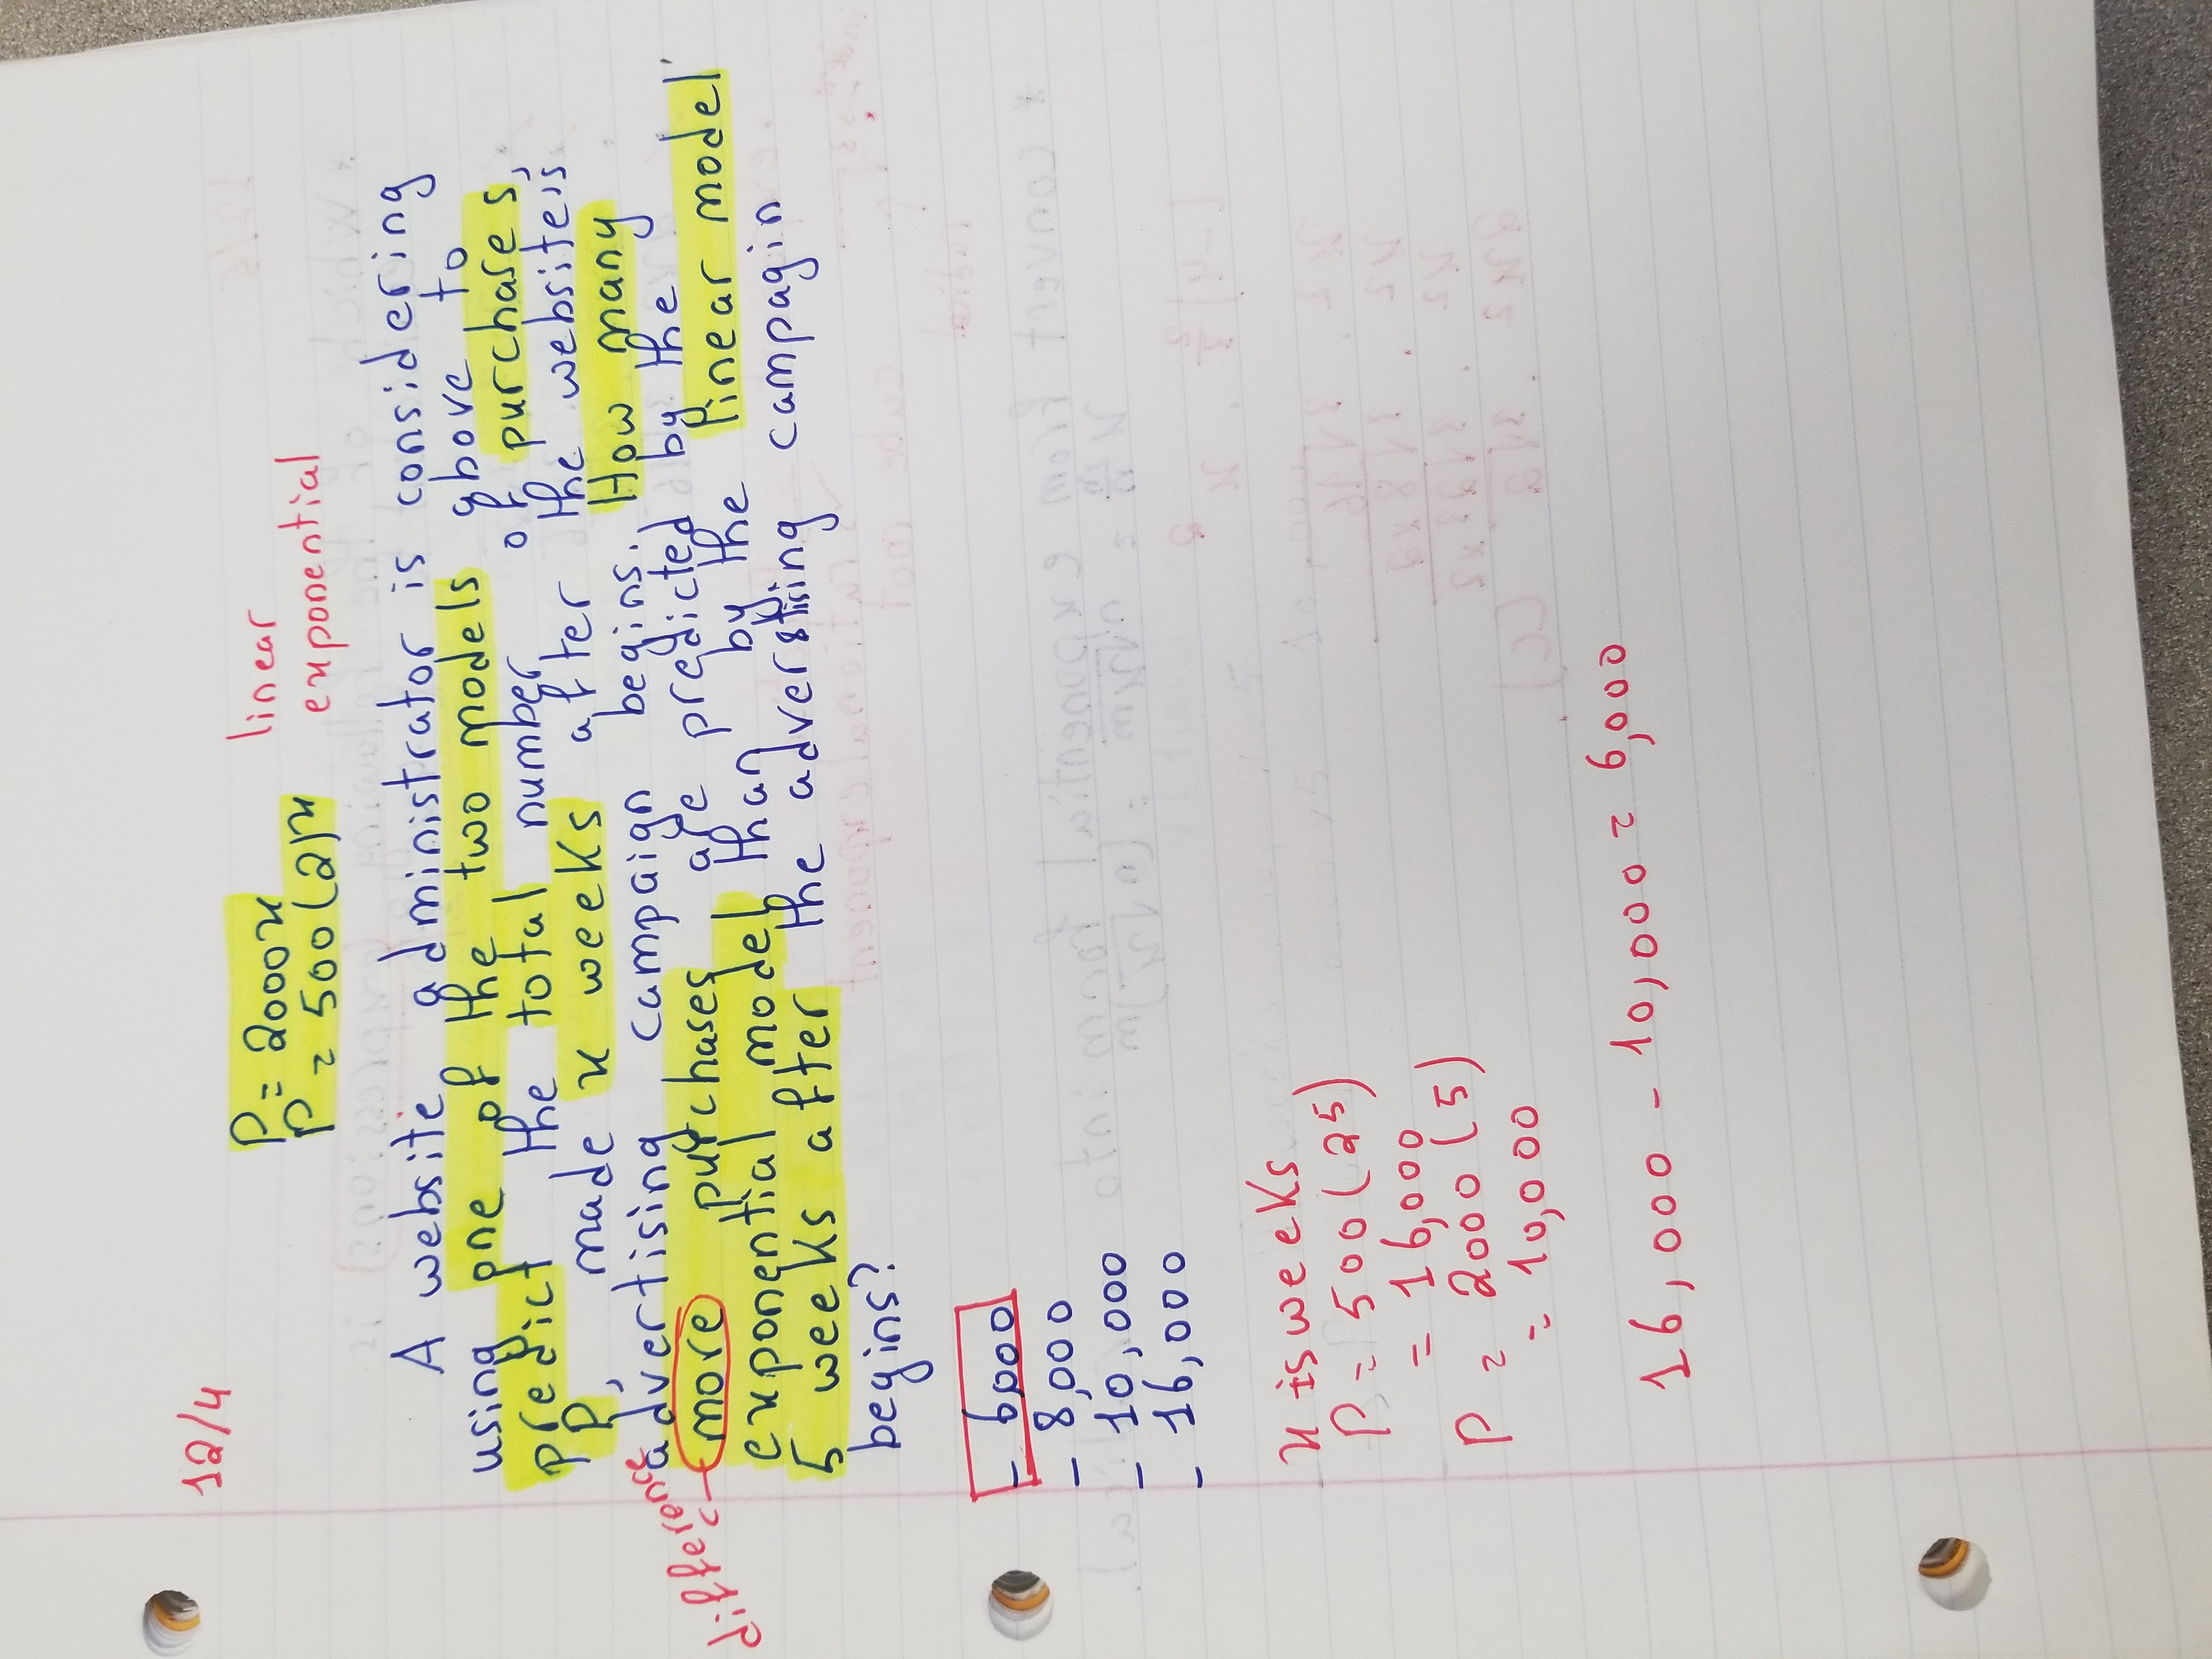 12/4
P = 2000x linear
P = 500(2)x exponential
A website administrator is considering
using one of the two models above to
predict the total number of purchases,
P, made x weeks after the website's
advertising campaign begins. How many
difference more purchases are predicted by the
exponential model than by the linear model
5 weeks after the adversising campagin
begins?
- 6,000
- 8,000
- 10,000
- 16,000
x is weeks
P = 500(25)
= 16,000
P = 2000(5)
= 10,000
16,000 - 10,000 = 6,000